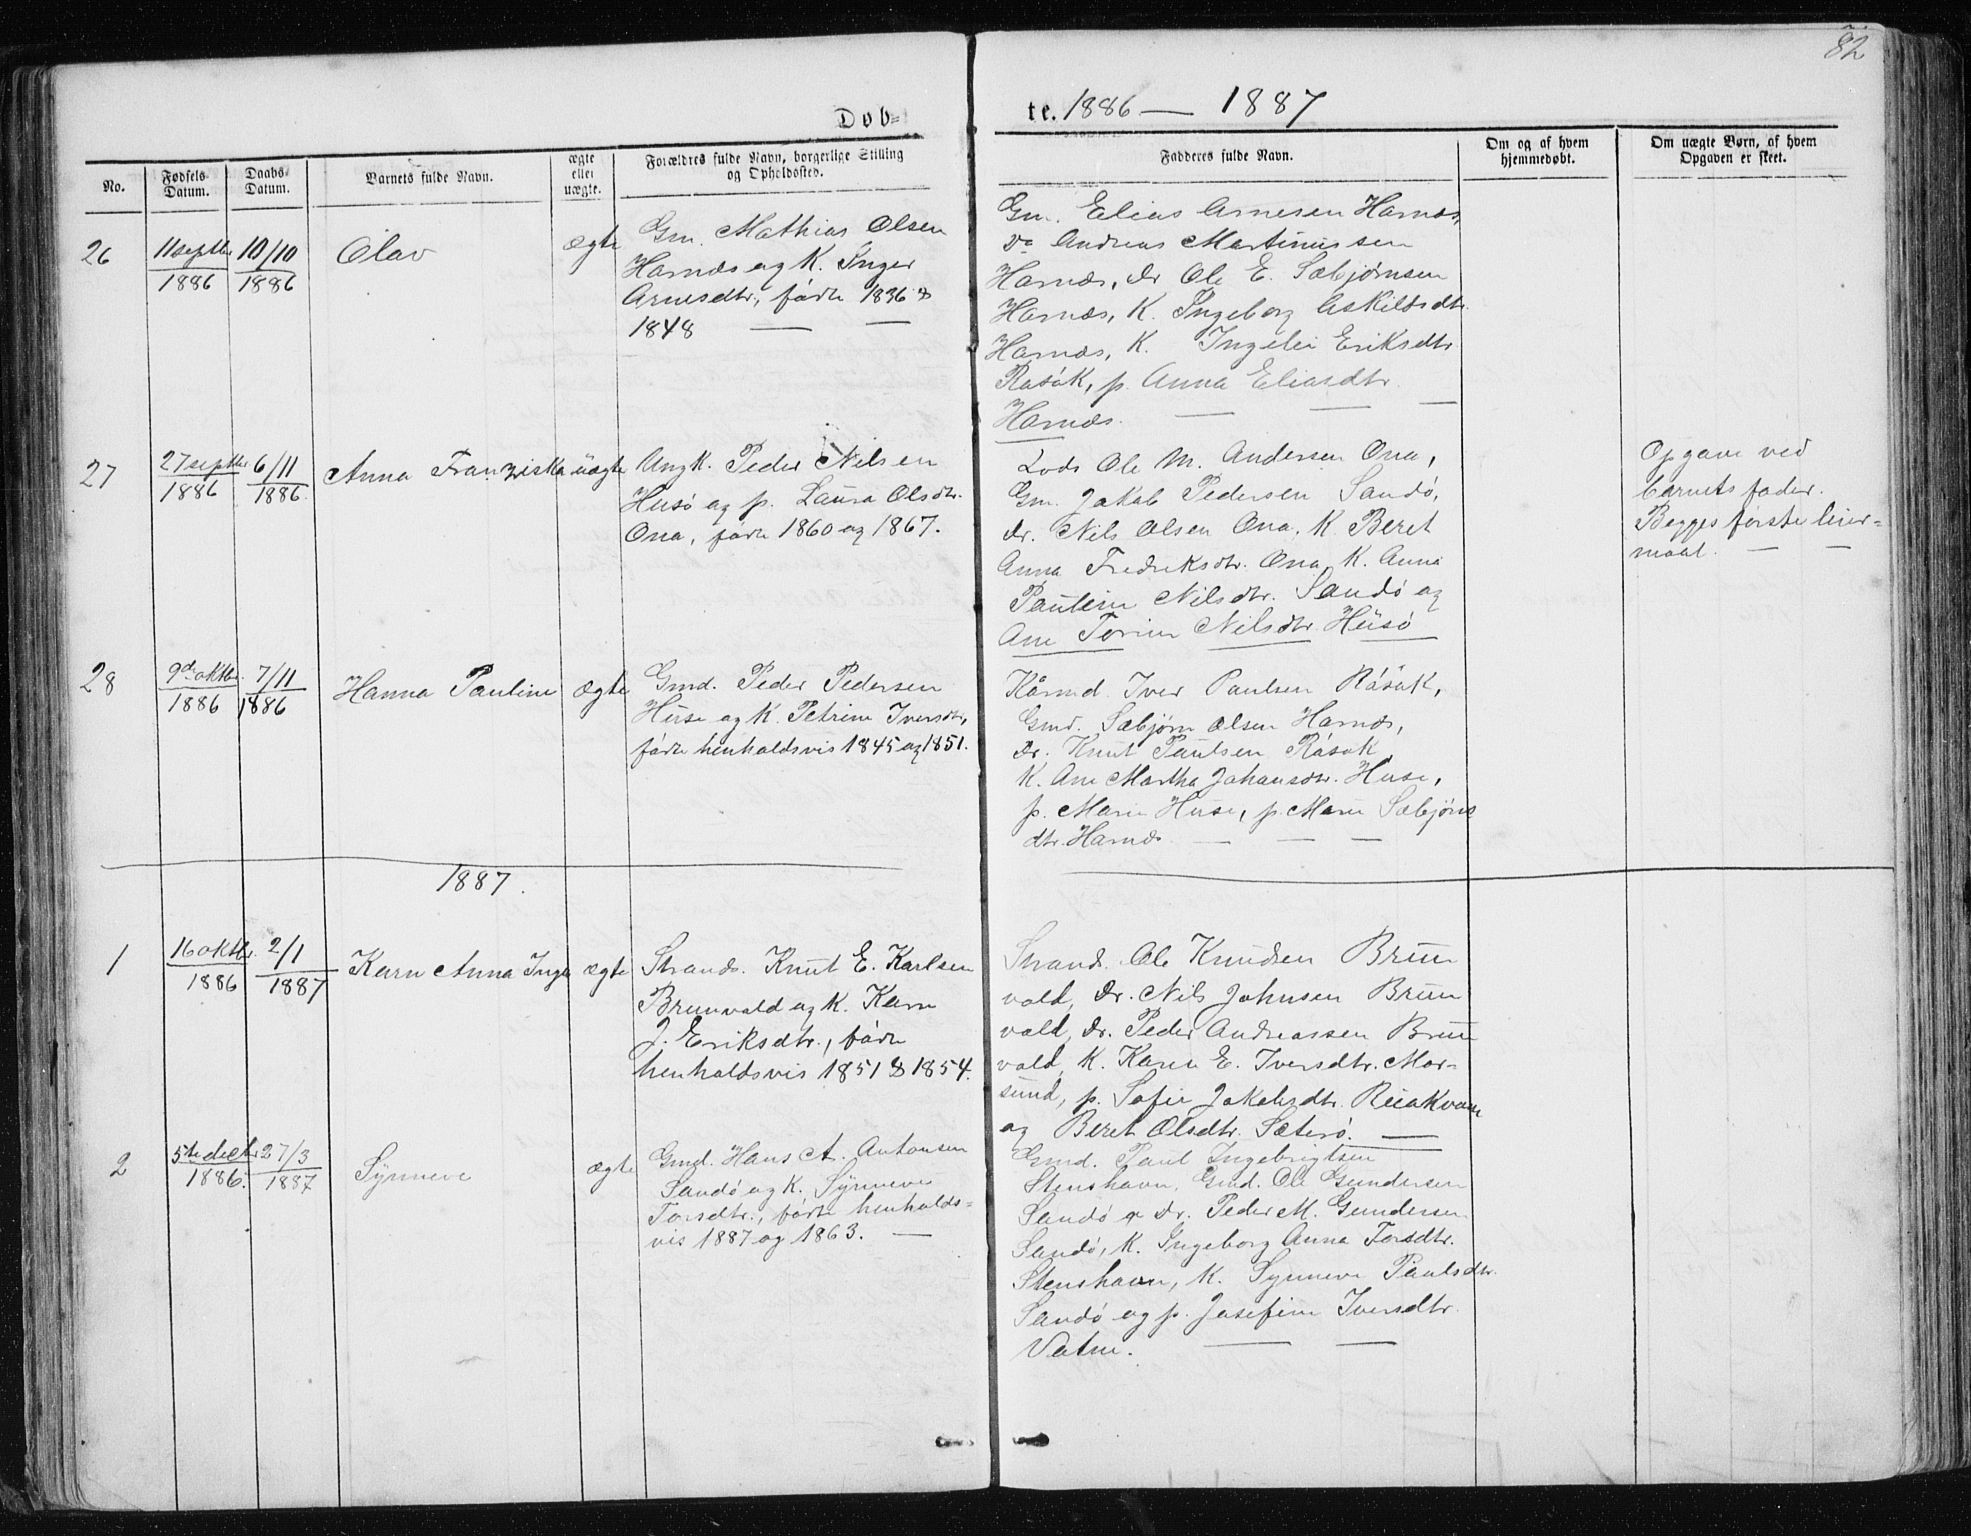 82
Døb-
te. 1886 — 1887
No.
Fødsels
Datum.
Daabs-
Datum.
Barnets fulde Navn.
ægte
eller
uægte.
Forældres fulde Navn, borgerlige Stilling
og Opholdssted.
Fadderes fulde Navn.
Om og af hvem
hjemmedøbt.
Om uægte Børn, af hvem
Opgaven er skeet.
26
11 septbr
1886
10/10
1886
Olav
ægte
Gm. Mathias Olsen
Harnæs og K. Inger
Arnesdtr., fødte 1836 &
1848 — —
Gm. Elias Arnesen Harnæs,
do Andreas Martinussen
Harnæs, dr Ole E. Sæbjørnsen
Harnæs, K. Ingeborg Askildsdtr.
Harnæs, K. Ingelei Eriksdtr.
Rasök, p. Anna Eliasdtr.
Harnæs. — — —
27
27 septbr
1886
6/11
1886.
Anna Franziska
uægte
Ungk. Peder Nilsen
Husö og p. Laura Olsdtr.
Ona, fødte 1860 og 1867.
Lods Ole M. Andersen Ona,
Gm. Jakob Pedersen Sandö,
dr. Nils Olsen Ona, K. Beret
Anna Fredriksdtr. Ona, K. Anna
Pauline Nilsdtr. Sandö og
Ane Torine Nilsdtr. Husö
Opgave ved
barnets fader.
Begges første leier-
maal. — —
28
9de oktbr.
1886
7/11
1886
Hanna Pauline
ægte
Gmd. Peder Pedersen
Huse og K. Petrine Iversdtr,
fødte henholdsvis 1845 og 1851.
Kårmd. Iver Paulsen Råsök,
Gmd. Sæbjørn Olsen Harnæs,
Dr. Knut Paulsen Råsök
K. Ane Martha Johansdtr. Huse,
p. Marie Huse, p. Marie Sæbjörns
dtr. Harnæs — — —
1887.
1
16 oktbr.
1886
2/1
1887
Karn Anna Inga
ægte
Strands. Knut E. Karlsen
Brunvold og K. Karn
J. Eriksdtr., fødte
henholdsvis 1851 & 1854.
Strands. Ole Knudsen Brun
vold, Dr. Nils Johnsen Brun
vold, Dr. Peder Andreassen Brun
vold, K. Karn E. Iversdtr. Mor-
sund, p. Sofie Jakobsdtr. Riiakvam
og Beret Olsdtr. Sæterö. —
2
5te decbr
1886.
27/3
1887
Synneve
ægte
Gmd. Hans A. Antonsen
Sandö og K. Synneve
Torsdtr., fødte henholds-
vis 1887 og 1863. —
Gmd. Paul Ingebrigtsen
Stenshavn, Gmd. Ole Gundersen
Sandö & Dr. Peder M. Gundersen
Sandö, K. Ingeborg Anna Torsdtr.
Stenshavn, K. Synneve Paulsdtr.
Sandö og p. Josefine Iversdtr.
Vatne. — —